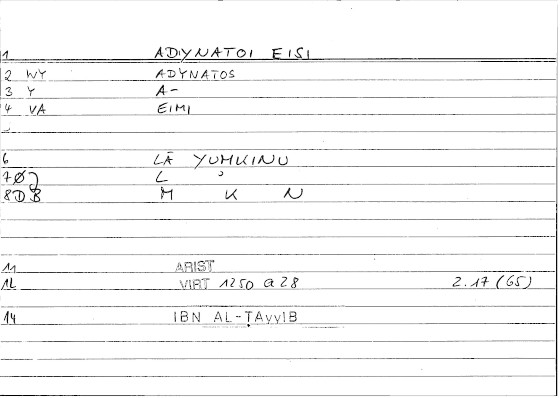 1 ADYNATOI EISI
2 WY ADYNATOS
3 Y A-
4 VA EIMI
6 LĀ YUMKINU
7 L ʾ
8 DB M K N
11 ARIST
12 VIRT 1250 a 28 2.17 (65)
14 IBN AL-ṬAyyIB